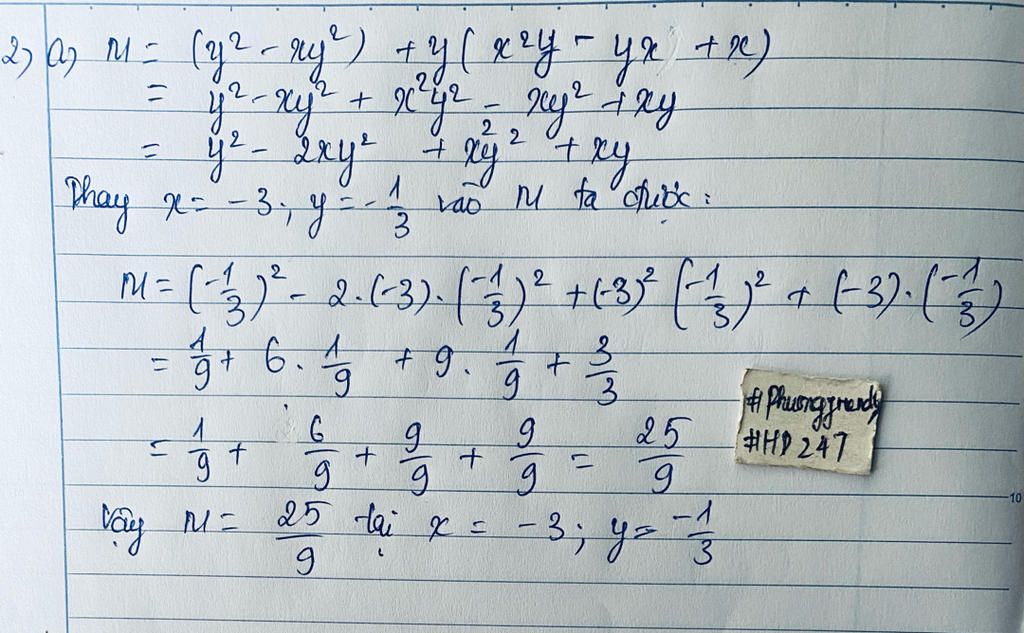 2) a) M = (y² - xy²) + y(x²y - yx + x)
= y² - xy² + x²y² - xy² + xy
= y² - 2xy² + x²y² + xy
Thay x = -3; y = -1/3 vào M ta được:
M = (-1/3)² - 2.(-3).(-1/3)² + (-3)² (-1/3)² + (-3).(-1/3)
= 1/9 + 6. 1/9 + 9. 1/9 + 3/3
= 1/9 + 6/9 + 9/9 + 9/9 = 25/9
Vậy M = 25/9 tại x = -3; y = -1/3
#HD247